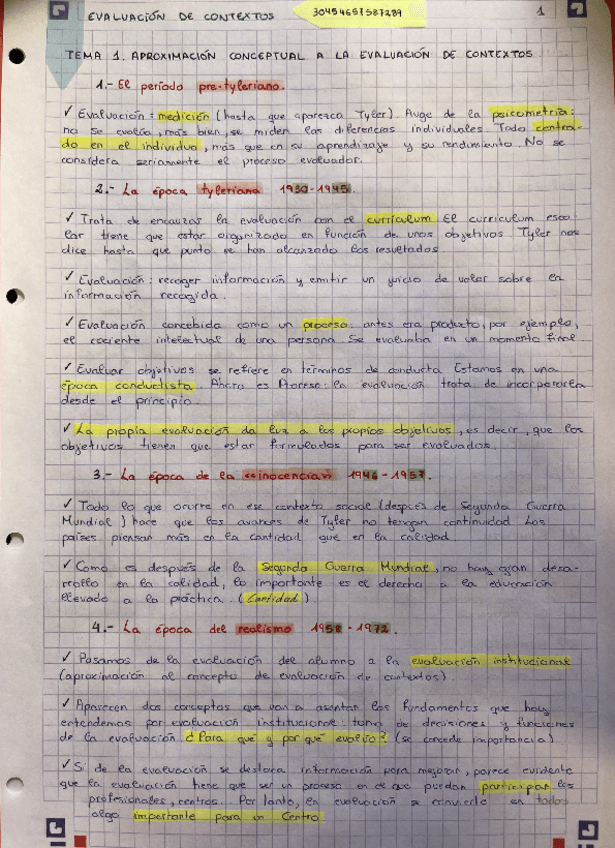 EVALUACIÓN DE CONTEXTOS
30454657587289
1
TEMA 1. APROXIMACIÓN CONCEPTUAL A LA EVALUACIÓN DE CONTEXTOS
1.- El período pre-tyleriano.
✓ Evaluación: medición (hasta que aparezca Tyler). Auge de la psicometría:
no se evalúa, más bien, se miden las diferencias individuales. Todo centra-
do en el individuo, más que en su aprendizaje y su rendimiento. No se
considera seriamente el proceso evaluador.
2.- La época tyleriana 1930-1945.
✓ Trata de encauzar la evaluación con el currículum. El curriculum esco
lar tiene que estar organizado en función de unos objetivos. Tyler nos
dice hasta que punto se han alcanzado los resultados.
✓ Evaluación: recoger información y emitir un juicio de valor sobre la
información recogida.
✓ Evaluación concebida como un proceso: antes era producto, por ejemplo,
el cociente intelectual de una persona. Se evaluaba en un momento final.
✓ Evaluar objetivos se refiere en términos de conducta. Estamos en una
época conductista. Ahora es Proceso: la evaluación trata de incorporarla
desde el principio.
✓ La propia evaluación da luz a los propios objetivos, es decir, que los
objetivos tienen que estar formulados para ser evaluados.
3.- La época de la «inocencia» 1946-1957.
✓ Todo lo que ocurre en ese contexto social (después de Segunda Guerra
Mundial) hace que los avances de Tyler no tengan continuidad. Los
países piensan más en la cantidad que en la calidad.
✓ Como es después de la Segunda Guerra Mundial, no hay gran desa-
rrollo en la calidad, lo importante es el derecho a la educación
llevado a la práctica. (Cantidad)
4.- La época del realismo 1958-1972.
✓ Pasamos de la evaluación del alumno a la evaluación institucional
(aproximación al concepto de evaluación de contextos).
✓ Aparecen dos conceptos que van a asentar los fundamentos que hoy
entendemos por evaluación institucional: toma de decisiones y funciones
de la evaluación ¿Para qué y por qué evalúo? (se concede importancia)
✓ Si de la evaluación se destaca información para mejorar, parece evidente
que la evaluación tiene que ser un proceso en el que puedan participar los
profesionales, centros. Por tanto, la evaluación se convierte en todos
algo importante para un Centro